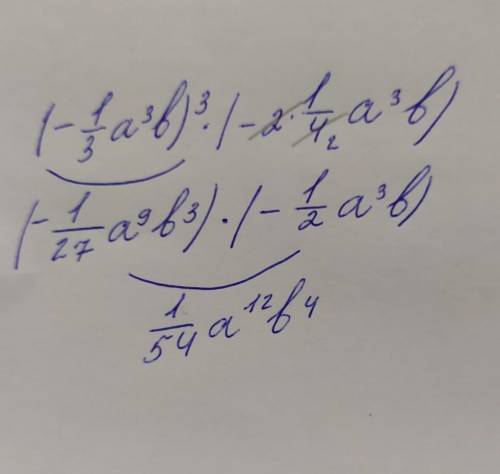 (-1/3 a³b)³ · (-2 · 1/4₂ a³b)
(-1/27 a⁹b³) · (-1/2 a³b)
1/54 a¹²b⁴